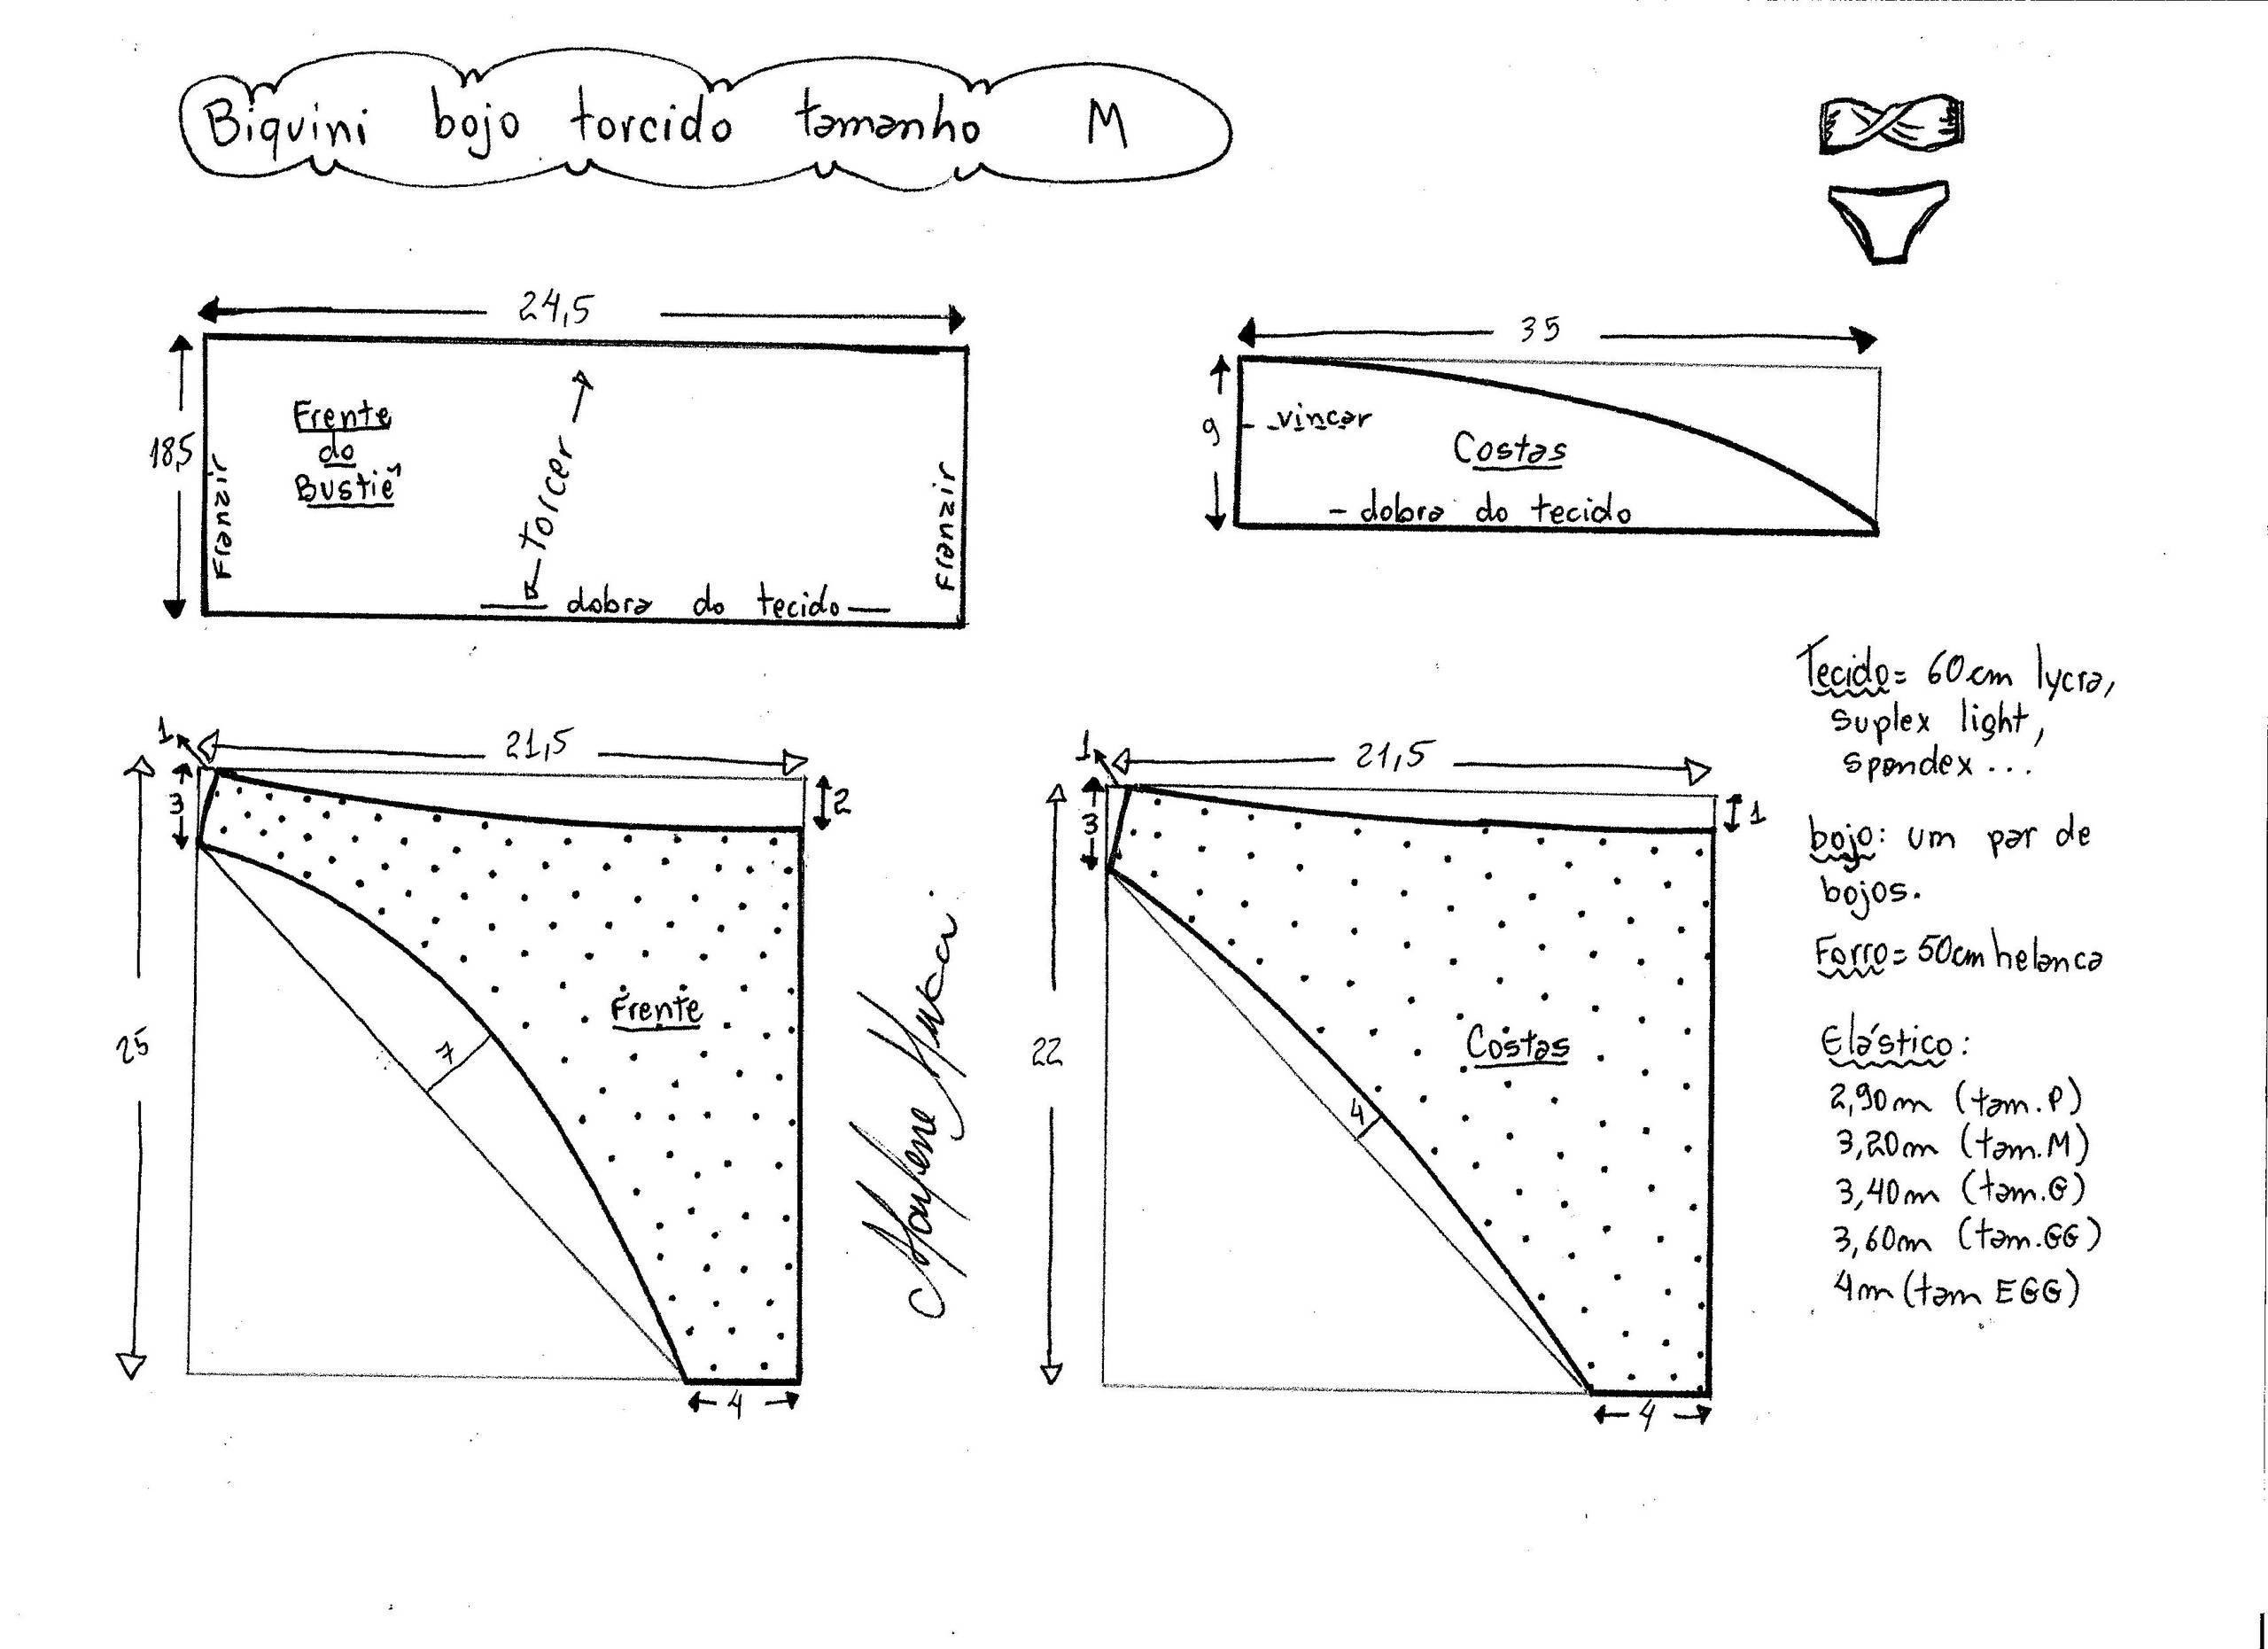 Biquini bojo torcido tamanho M
24,5
18,5
Franzir
Frente
do
Bustiê
torcer
Franzir
dobra do tecido
35
9
vincar
Costas
dobra do tecido
1
21,5
3
2
25
Frente
7
4
1
21,5
3
1
22
Costas
4
4
Tecido= 60cm lycra,
suplex light,
spandex...
bojo: um par de
bojos.
Forro= 50cm helanca
Elástico:
2,90m (tam.P)
3,20m (tam.M)
3,40m (tam.G)
3,60m (tam.GG)
4m (tam EGG)